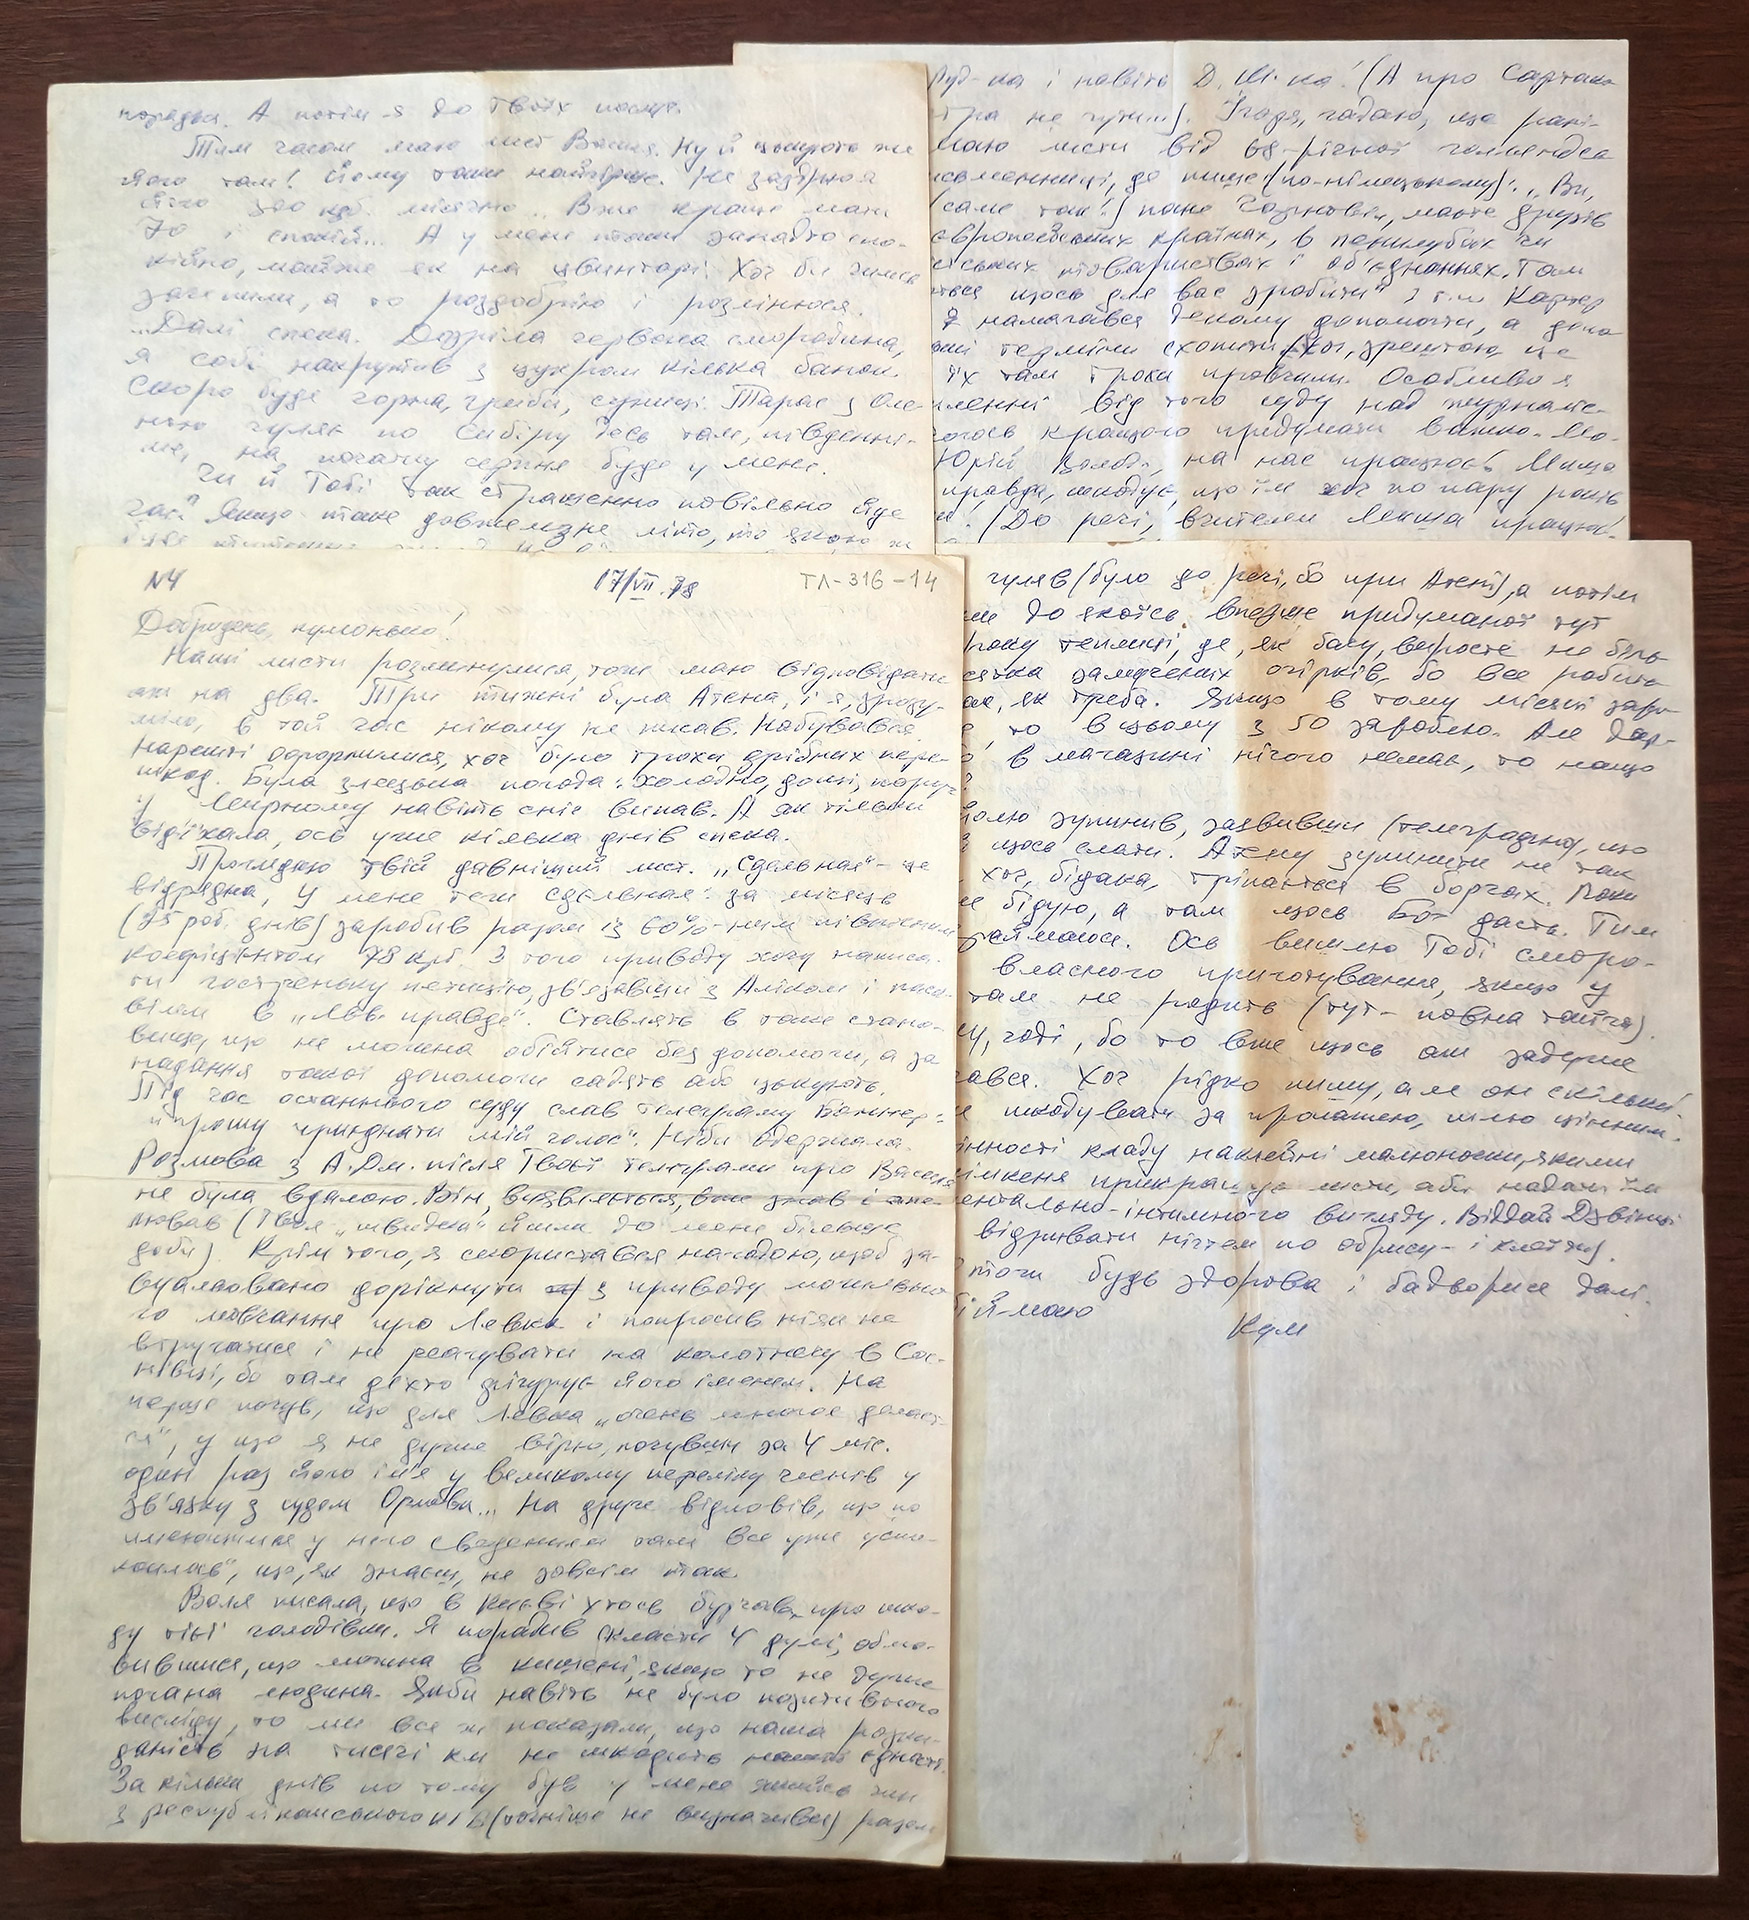 порядки. А потім я до Твоїх послуг.
Тим часом маю лист Василя. Ну й цькують же
його там! Йому таки найгірше. Не заздрю я
його 300 крб. місячно. Вже краще мати
70 і спокій... А у мене таки занадто спо-
кійно, майже як на цвинтарі. Хоч би чимсь
зачепили, а то роздобрію і розлінюся.
Далі спека. Дозріла червона смородина,
я собі накрутив з цукром кілька банок.
Скоро буде чорна, гриби, суниці. Тарас з Оле-
ною гуляє по Сибіру десь там, південні-
ше, на початку серпня буде у мене.
Чи й Тобі так страшенно повільно йде
час? Якщо таке довжелезне літо, то якою ж
і навіть Д. Ш-ка! (А про Сартака
не чути...). Ігоря, гадаю, що рані-
маю листи від 68-річної голландсь
де пише (по-німецькому): „Ви,
(саме так!) пане Чорновіл, маєте друзів
європейських країнах, в пенклубах чи
товариствах і об'єднаннях. Там
щось для вас зробити" і т.п. Картер
намагався декому допомогти, а допо
терміни схопити. Хоч, зрештою, це
їх там трохи провчили. Особливо я
від того суду над журналіс-
когось кращого придумати важко. Мо-
Юрій, Володя, на нас працюють! Миша
правда, шкодує, що їм хоч по пару років
(До речі, вчителем Миша працює!
N4 17/VII.78 ТЛ-316-14
Добридень, кумонько!
Наші листи розминулися, тож маю відповідати
аж на два. Три тижні була Атена, і я, зрозу-
міло, в той час нікому не писав. Набувався.
Нарешті оформилися, хоч було трохи дрібних пере-
шкод. Була злецька погода: холодно, дощі, поруч
у Мирному навіть сніг випав. А як тільки
від'їхала, ось уже кілька днів спека.
Проглядаю твій давніший лист. „Сдельная" – це
відрядна. У мене теж сдельная: за місяць
(25 роб. днів) заробив разом із 60%-ним північним
коефіцієнтом 78 крб. З того приводу хочу написа-
ти гостреньку петицію, зв'язавши з Аліком і паск-
вілем в „Льв. правде". Ставлять в таке стано-
вище, що не можна обійтися без допомоги, а за
надання такої допомоги садять або цькують.
Під час останнього суду слав телеграму Боннер:
„прошу приєднати мій голос". Ніби одержала.
Розмова з А.Дм. після Твоєї телеграми про Василя
не була вдалою. Він, виявляється, вже знав і
(Твоя „швидка" йшла до мене більше
доби). Крім того, я скористався нагодою, щоб за-
вуальовано дорікнути з приводу
го мовчання про Левка і попросив ніяк не
втручатися і не реагувати на колотнечу в Сос-
нівці, бо там дехто фігурує його іменем. На
перше почув, що для Левка „очень многое делает-
ся", у що я не дуже вірю, почувши за 4 міс.
один раз його ім'я у великому переліку членів у
зв'язку з судом Орлова... На друге відповів, що „по
имеющимся у него сведениям там все уже успо-
коилось", що, як знаєш, не зовсім так.
Воля писала, що в Києві хтось бурчав про шко-
ду тієї голодівки. Я порадив скласти 4 дулі, обмо-
вившися, що можна в кишені, якщо то не дуже
погана людина. Якби навіть не було позитивного
висліду, то ми все ж показали, що наша розки-
даність на тисячі км не шкодить нашій єдності.
За кілька днів по тому був у мене якийсь чин
з республіканського КГБ (точніше не визначився) разом
гуляв (було до речі, бо при Атені), а потім
до якоїсь вперше придуманої тут
року теплиці, де, як бачу, виросте не біль
десятка замучених огірків, бо все робить
як треба. Якщо в тому місяці заро
то в цьому з 50 зароблю. Але дар-
в магазині нічого немає, то нащо
зупинив, заявивши (телеграфно), що
щось слати. Атену зупинити не так
хоч, бідака, тріпається в боргах. Поки
не бідую, а там щось Бог дасть. Тим
Ось вишлю Тобі сморо-
власного приготування, якщо у
там не родить (тут – повна тайга).
годі, бо то вже щось аж задерие
Хоч рідко пишу, але он скільки!
шкодувати за пропащею, шлю цінним.
цінності кладу наклейні малюночки, якими
прикрашує листи, аби надати їм
сентиментально-інтимного вигляду. Віддай Дзвінці
відривати нігтем по обрису – і клеїти).
поки будь здорова і бадьорися далі.
обіймаю
Кум